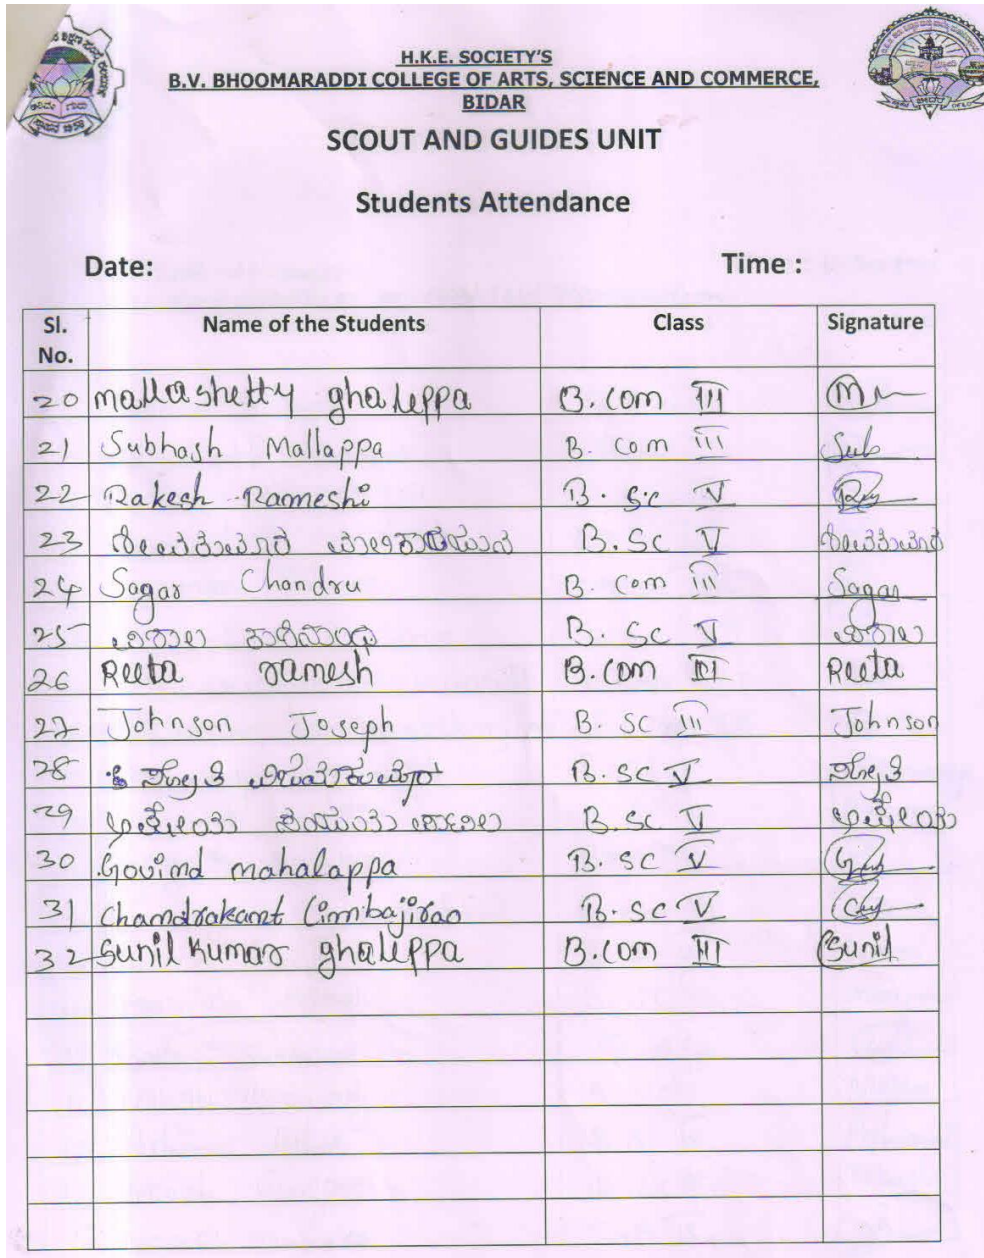 H.K.E. SOCIETY'S
B.V. BHOOMARADDI COLLEGE OF ARTS, SCIENCE AND COMMERCE,
BIDAR
SCOUT AND GUIDES UNIT
Students Attendance
Date: Time :
Sl. No. Name of the Students Class Signature
20 mallashetty ghaleppa B.com III
21 Subhash Mallappa B. com III Sub
22 Rakesh Rameshi B. sc V
23 B. Sc V
24 Sagar Chandru B. Com III Sagar
25 B. Sc V
26 Reeta ramesh B.com III Reeta
27 Johnson Joseph B. SC III Johnson
28 B. SC V
29 B. Sc V
30 Govind mahalappa B. SC V
31 Chandrakant Limbajirao B. SC V
32 Sunil kumar ghaleppa B.com III Sunil